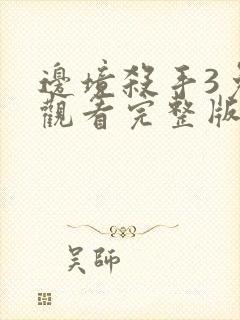 邊境殺手3免
觀看完整版
吴師